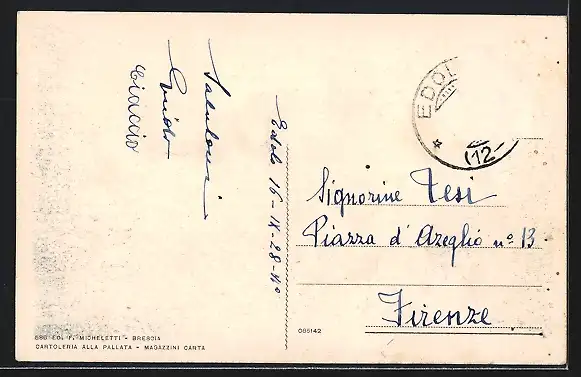 Saluloni
Guido
Ciaccio
Edolo 16-IX-28-VI°
EDOL
(12-
Signorine Tesi
Piazza d'Azeglio n° 13
Firenze
ED. F. MICHELETTI - BRESCIA
CARTOLERIA ALLA PALLATA - MAGAZZINI CARTA
085142